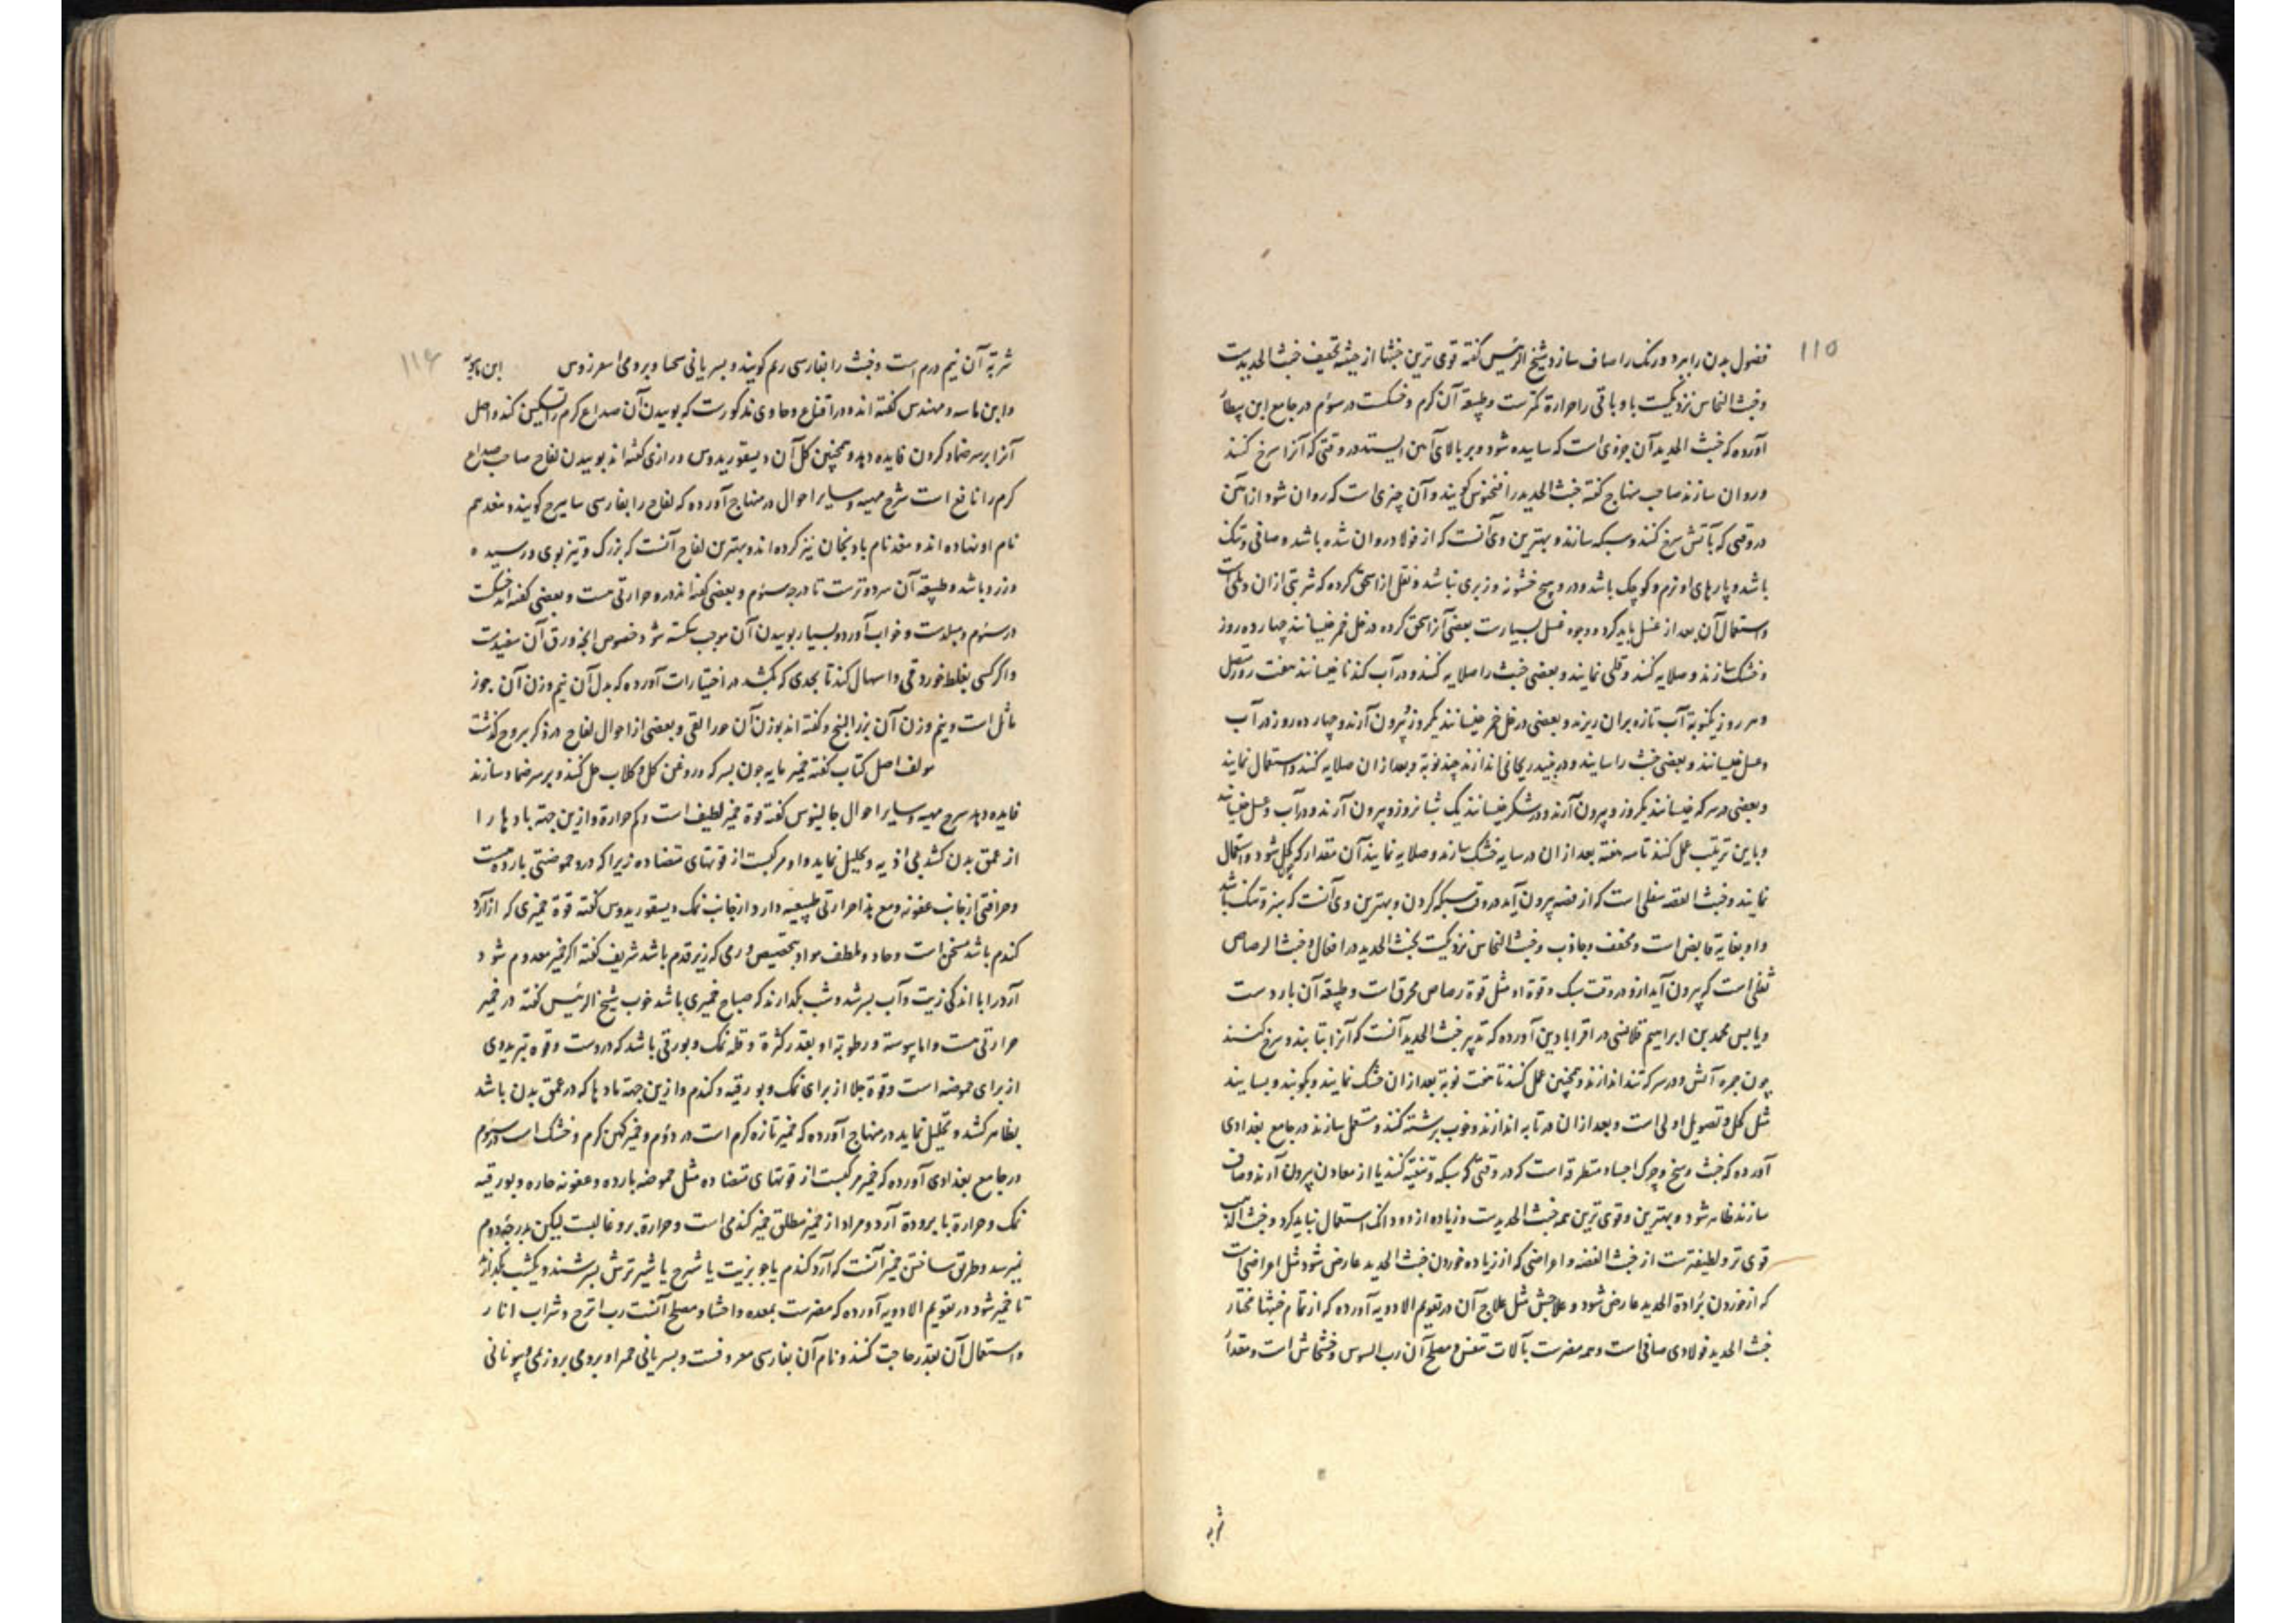 ۱۱۵
فضول بدن را ببرد و رنک را صاف سازد شیخ الرئیس کفته قوی ترین خبثها از حیثیة تجفیف خبث الحدیدست
و خبث النحاس نزدیکست باو باقی را حرارة کمترست و طبیعة آن کرم و خشکست در سوم در جامع ابن بیطار
آورده که خبث الحدید آن جزوی است که ساییده شود و بر بالای آهن ایستد در وقتی که آنرا سرخ کنند
و روان سازند صاحب منهاج کفته خبث الحدید را کویند و آن چیزی است که روان شود از آهن
در وقتی که بآتش سرخ کنند و سبکه سازند و بهترین وی آنست که از فولاد روان شده باشد و صافی و تنک
باشد و پارهای او نرم و کوچک باشد و در و هیچ خشونة و زبری نباشد و نقل از اسحق کرده که شربتی ازان است
و استعمال آن بعد از غسل باید کرد و وجوه غسل بسیارست بعضی آنرا سحق کرده در خل خمر خیسانند چهارده روز
و خشک سازند و صلایه کنند و قلی نمایند و بعضی خبث را صلایه کنند و در آب کندنا خیسانند هفت روز متصل
و هر روز یکنوبة آب تازه بران ریزند و بعضی در خل خمر خیسانند یکروز و بیرون آرند و چهارده روز در آب
و عسل خیسانند و بعضی خبث را سایند و در نبیذ ریحانی اندازند چند نوبة و بعد ازان صلایه کنند و استعمال نمایند
و بعضی در سرکه خیسانند یکروز و بیرون آرند و در شکر خیسانند یک شبانروز و بیرون آرند و در آب و عسل خیسانند
و باین ترتیب عمل کنند تا سه هفته بعد ازان در سایه خشک سازند و صلایه نمایند آن مقدار که کحل شود و استعمال
نمایند و خبث الفضه ثفلی است که از فضه بیرون آید در وقت سبکه کردن و بهترین وی آنست که سبز و تنک باشد
و او بغایة قابض است و مجفف و جاذب و خبث النحاس نزدیکست بخبث الحدید در افعال و خبث الرصاص
ثفلی است که بیرون آید ازو در وقت سبک و قوة او مثل قوة رصاص محرق است و طبیعة آن باردست
و یابس محمد بن ابراهیم قلانسی در اقرابادین آورده که تدبیر خبث الحدید آنست که آنرا بتابند و سرخ کنند
چون جمره آتش و در سرکه تند اندازند و همچنین عمل کنند تا هفت نوبة بعد ازان خشک نمایند و بکوبند و بسایند
مثل کحل و تصویل اولی است و بعد ازان در تابه اندازند و خوب برشته کنند و مستعمل سازند در جامع بغدادی
آورده که خبث وسخ و چرک اجساد متطرقه است که در وقتی که سبکه و تنقیة کنند یا از معادن بیرون آرند و صاف
سازند ظاهر شود و بهترین و قوی ترین همه خبث الحدیدست و زیاده از دو دانک استعمال نباید کرد و خبث الذهب
قوی تر و لطیفترست از خبث الفضه و اعراضی که از زیاده خوردن خبث الحدید عارض شود مثل اعراضی است
که از خوردن برادة الحدید عارض شود و علاجش مثل علاج آن در تقویم الادویه آورده که از تمام خبثها مختار
خبث الحدید فولادی صافی است و همه مضرست بآلات تنفس و مصلح آن رب السوس و خشخاش است و مقدار
شربة
۱۱۶
شربة آن نیم درم است و خبث را بفارسی ریم کویند و بسریانی سحا و برومی اسعرذوس
و ابن ماسه و مهندس کفته اند و در اقناع و حاوی مذکورست که بوییدن آن صداع کرم را تسکین کند و اصل
آنرا بر سر ضماد کردن فایده دهد و همچنین کل آن دیسقوریدوس و رازی کفته اند بوییدن لفاح صاحب صداع
کرم را نافع است شرح مهیه و سایر احوال در منهاج آورده که لفاح را بفارسی سابیزج کویند و مغد هم
نام او نهاده اند و مغد نام بادنجان نیز کرده اند و بهترین لفاح آنست که بزرک و تیز بوی و رسیده
و زرد باشد و طبیعة آن سرد و ترست تا درجه سوم و بعضی کفته اند درو حرارتی هست و بعضی کفته اند خشکست
در سوم و مبلدست و خواب آورد و بسیار بوییدن آن موجب سکته شود خصوص آنچه ورق آن سفیدست
و اکر کسی بغلط خورد قی و اسهال کند تا بحدی که بکشد در اختیارات آورده که بدل آن نیم وزن آن جوز
ماثل است و نیم وزن آن بزر البنج و کفته اند بوزن آن جوز القی و بعضی از احوال لفاح در ذکر یبروح کذشت
مولف اصل کتاب کفته خمیر مایه چون بسرکه و روغن کل و کلاب حل کنند و بر سر ضماد سازند
فایده دهد شرح مهیه و سایر احوال جالینوس کفته قوة خمیر لطیف است و کم حرارة و ازین جهة بادها را
از عمق بدن کشد بی اذیه و تحلیل نماید و او مرکبست از قوتهای متضاده زیرا که درو حموضتی بارده هست
و حرافتی از جانب عفونه و مع هذا حرارتی طبیعیه دارد از جانب نمک دیسقوریدوس کفته قوة خمیری که از آرد
کندم باشد مسخن است و جاذب و ملطف مواد بتخصیص ورمی که زیر قدم باشد شریف کفته اکر خمیر معدوم شود
آرد را با اندکی زیت و آب بسرشد و شب بکذارند که صباح خمیری باشد خوب شیخ الرئیس کفته در خمیر
حرارتی هست و اما یبوسته و رطوبة او بقدر کثرة و قلة نمک و بورقی باشد که دروست و قوة تبریدوی
از برای حموضه است و قوة جلا از برای نمک و بورقیه و کندم و ازین جهة مادها که در عمق بدن باشد
بظاهر کشد و تحلیل نماید در منهاج آورده که خمیر تازه کرم است در دوم و خمیر کهن کرم و خشک است در سوم
در جامع بغدادی آورده که خمیر مرکبست از قوتهای متضاده مثل حموضه بارده و عفونه حاره و بورقیه
نمک و حرارة با برودة آرد و مراد از خمیر مطلق خمیر کندمی است و حرارة برو غالبست لیکن بدرجه دوم
نمیرسد و طریق ساختن خمیر آنست که آرد کندم یا جو بزیت یا شیرج یا شیر ترش بسرشند و یکشب بکذارند
تا خمیر شود در تقویم الادویه آورده که مضرست بمعده و احشا و مصلح آنست رب اترج و شراب انار
و استعمال آن بقدر حاجت کنند و نام آن بفارسی معروفست و بسریانی حمرا و برومی و بیونانی